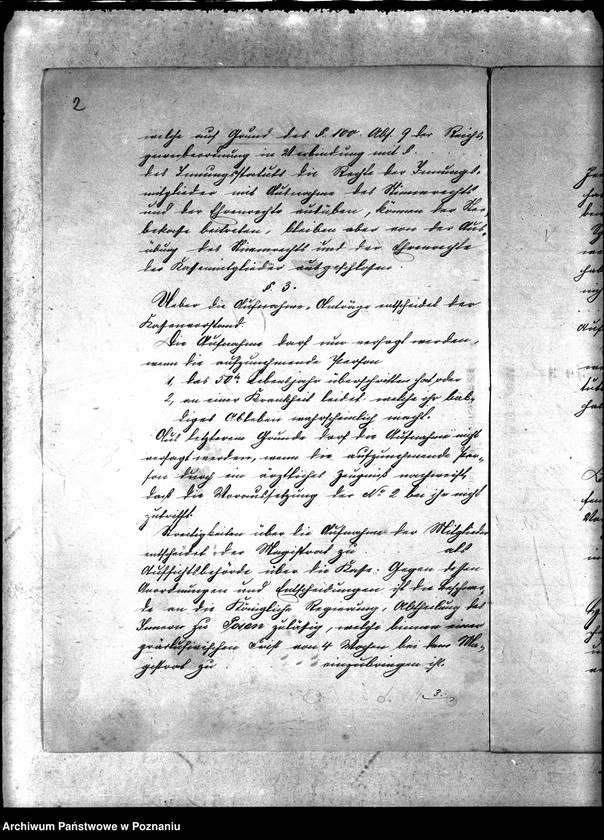 2
welche auf Grund des §. 100. Abs. 9 der Reichs,
gewerbeordnung in Verbindung mit §. . . . .
des Innungsstatuts die Rechte der Innungs,
mitglieder mit Ausnahme des Stimmrechts
und der Ehrenrechte ausüben, können der Ster,
bekasse beitreten, bleiben aber von der Aus,
übung des Stimmrechts und der Ehrenrechte
der Kassenmitglieder ausgeschlossen.
§ 3.
Ueber die Aufnahme, Anträge entscheidet der
Kassenvorstand.
Die Aufnahme darf nur versagt werden,
wenn die aufzunehmende Person
1, das 50te Lebensjahr überschritten hat oder
2, an einer Krankheit leidet, welche ihr bal,
diges Ableben wahrscheinlich macht.
Aus letzterem Grunde darf die Aufnahme nicht
versagt werden, wenn die aufzunehmende Per,
son durch ein ärztliches Zeugniß nachweist,
daß die Voraussetzung der No 2 bei ihr nicht
zutrifft.
Streitigkeiten über die Aufnahme der Mitglieder
entscheidet der Magistrat zu . . . . als
Aufsichtsbehörde über die Kasse. Gegen dessen
Anordnungen und Entscheidungen ist die Beschwer,
de an die Königliche Regierung, Abtheilung des
Innern zu Posen zulässig, welche binnen einer
präklusivischen Frist von 4 Wochen bei dem Ma,
gistrat zu . . . einzubringen ist.
3.
Archiwum Państwowe w Poznaniu